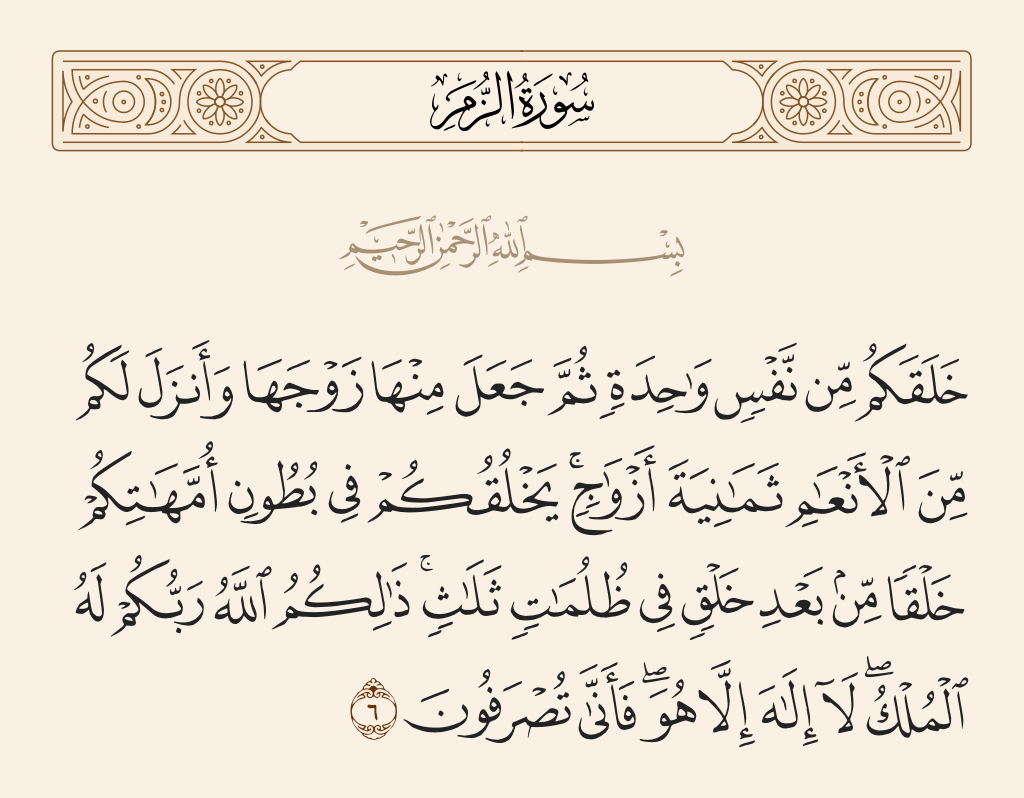 سُورَةُ الزُّمَرِ
بِسْمِ ٱللَّهِ ٱلرَّحْمَٰنِ ٱلرَّحِيمِ
خَلَقَكُم مِّن نَّفْسٍ وَٰحِدَةٍ ثُمَّ جَعَلَ مِنْهَا زَوْجَهَا وَأَنزَلَ لَكُم
مِّنَ ٱلْأَنْعَٰمِ ثَمَٰنِيَةَ أَزْوَٰجٍ ۚ يَخْلُقُكُمْ فِى بُطُونِ أُمَّهَٰتِكُمْ
خَلْقًا مِّنۢ بَعْدِ خَلْقٍ فِى ظُلُمَٰتٍ ثَلَٰثٍ ۚ ذَٰلِكُمُ ٱللَّهُ رَبُّكُمْ لَهُ
ٱلْمُلْكُ ۖ لَآ إِلَٰهَ إِلَّا هُوَ ۖ فَأَنَّىٰ تُصْرَفُونَ ٦